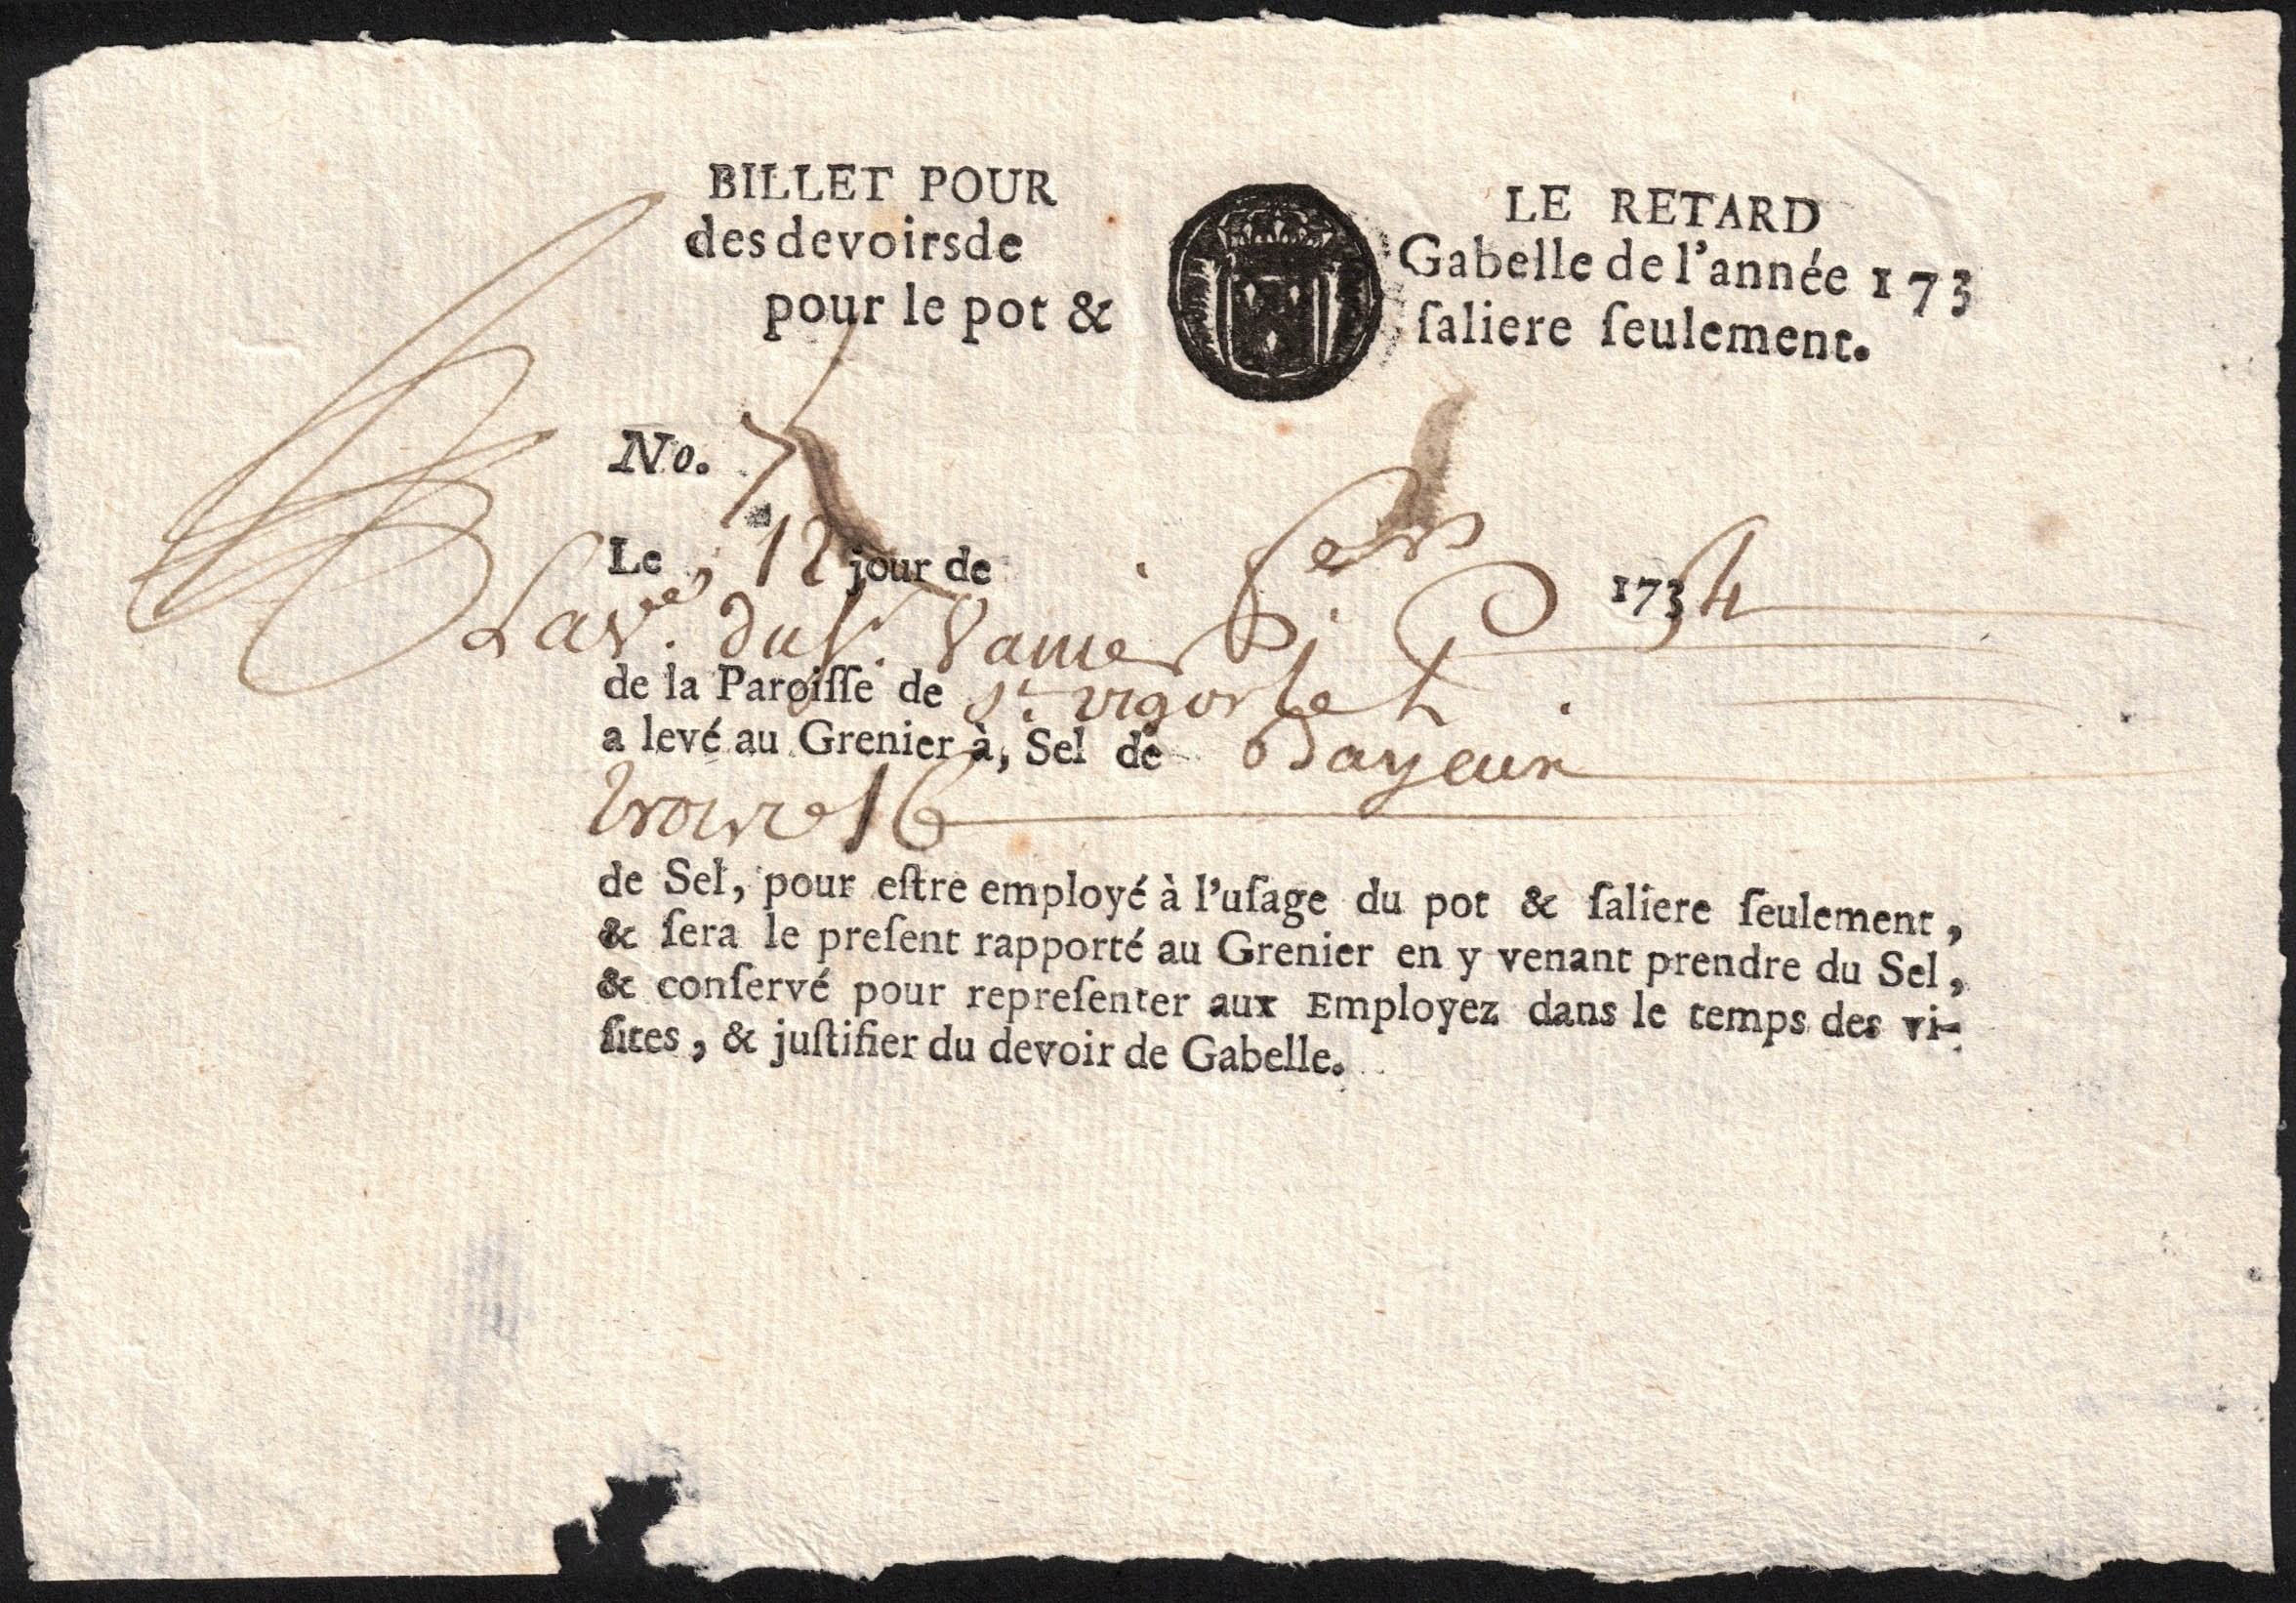 BILLET POUR LE RETARD
des devoirs de Gabelle de l'année 173
pour le pot & ſaliere ſeulement.
No. 7
Le 12 jour de 1734
La v.e du Sr.
de la Paroiſſe de St. vigor le
a levé au Grenier à, Sel de Bayeux
de Sel, pour eſtre employé à l'uſage du pot & ſaliere ſeulement,
& ſera le preſent rapporté au Grenier en y venant prendre du Sel,
& conſervé pour repreſenter aux Employez dans le temps des vi-
ſites, & juſtifier du devoir de Gabelle.